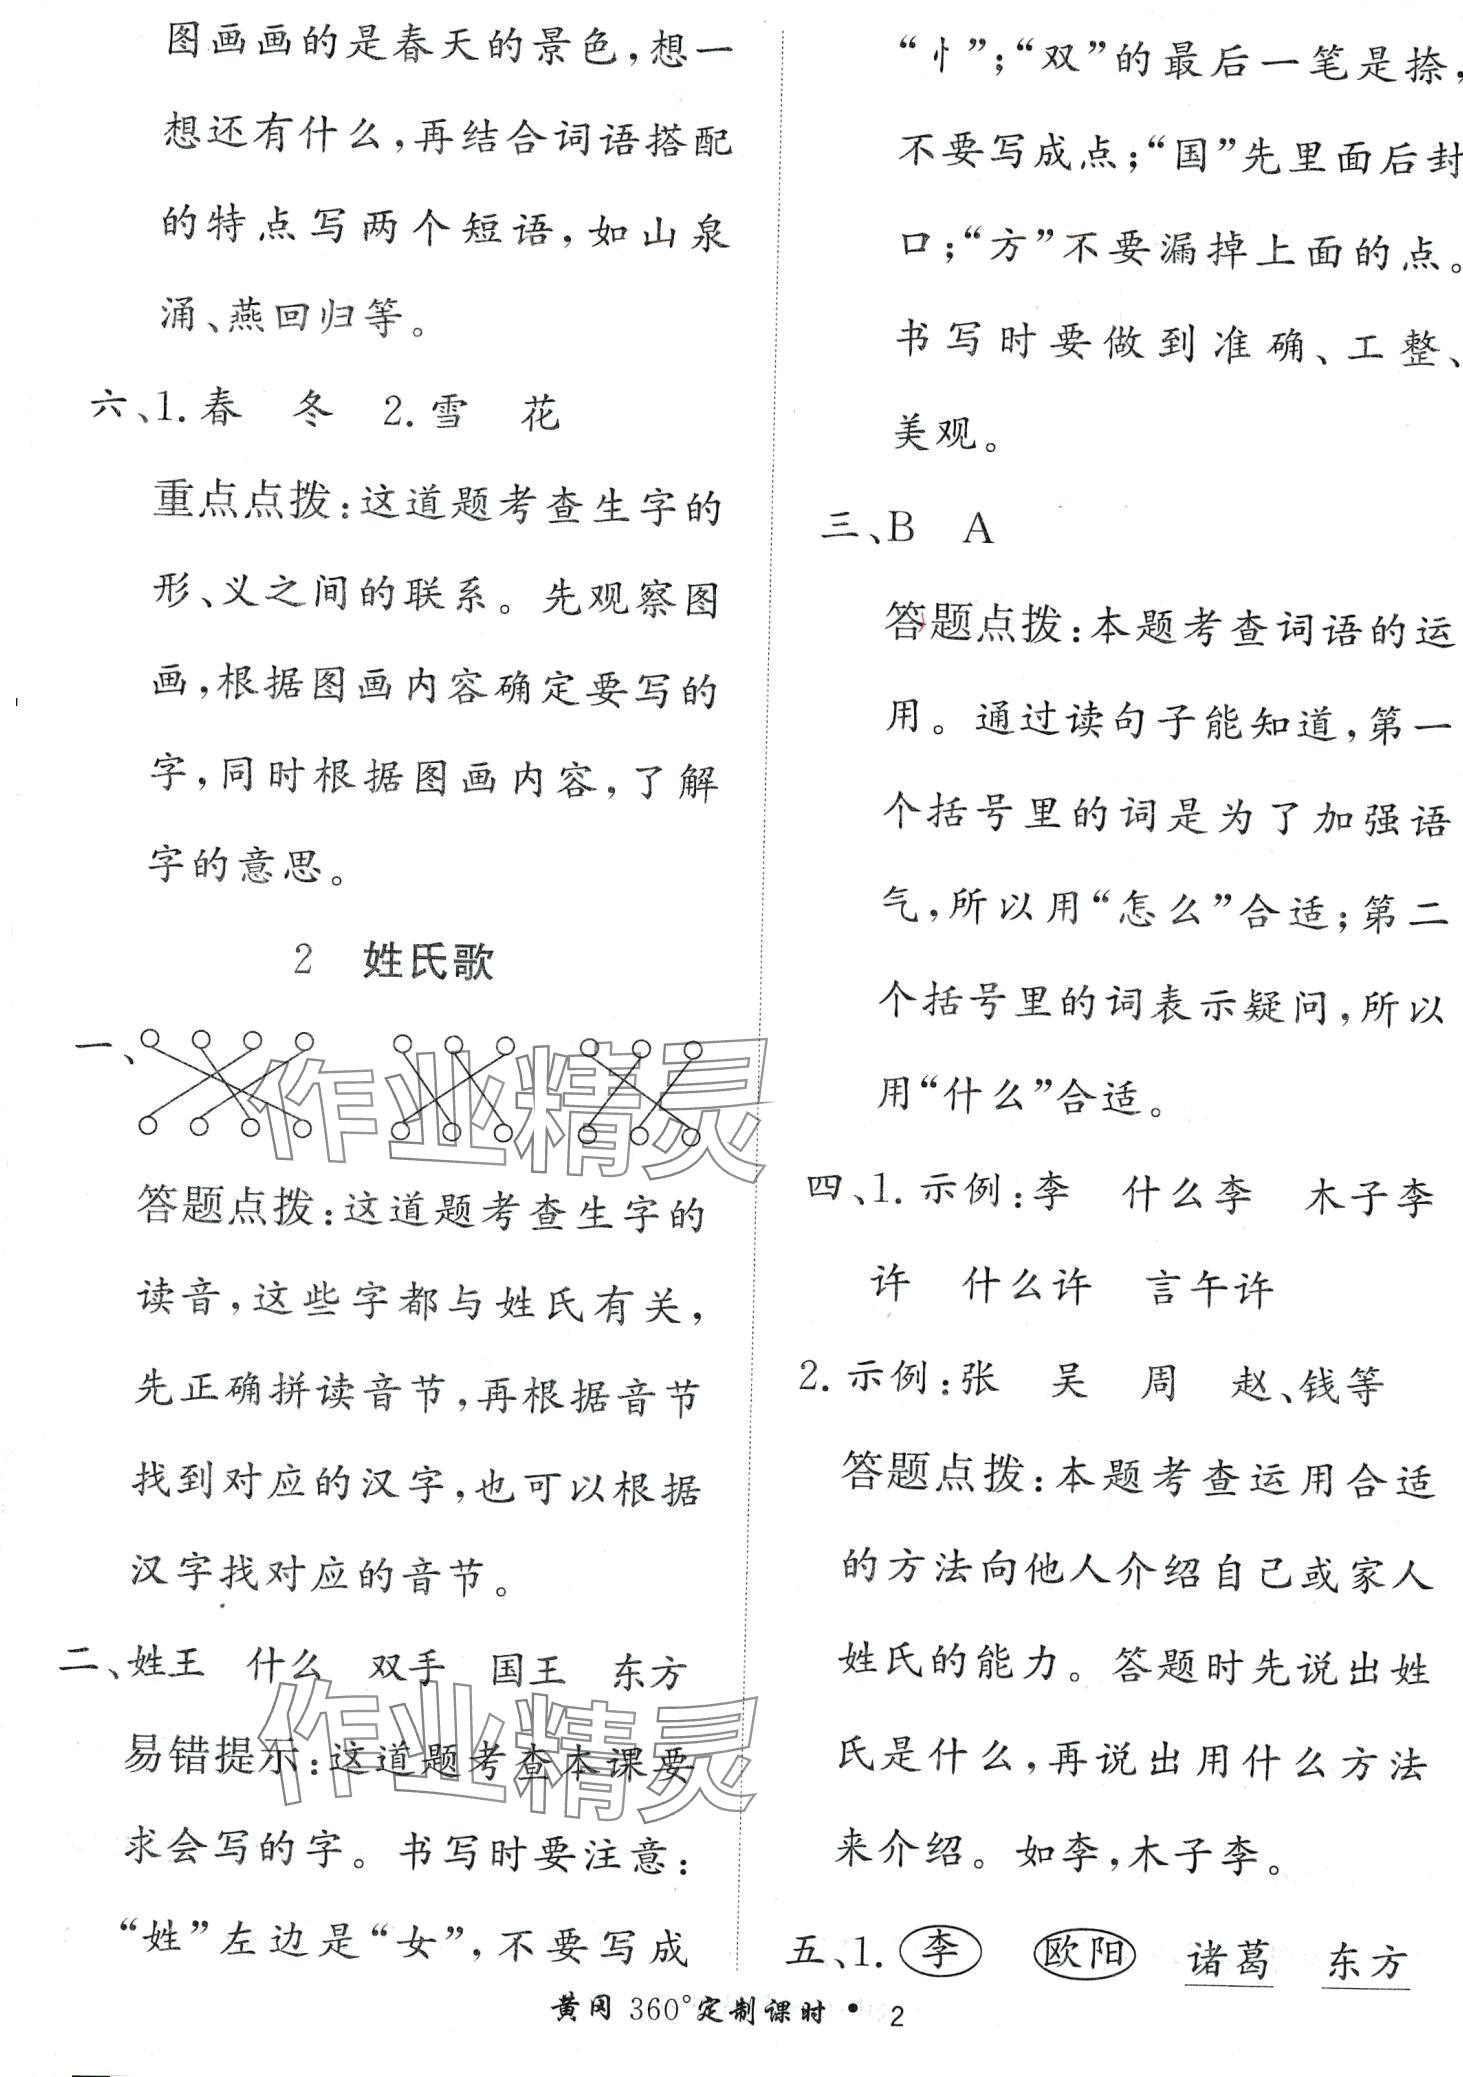 图画画的是春天的景色，想一
想还有什么，再结合词语搭配
的特点写两个短语，如山泉
涌、燕回归等。
六、1. 春　冬　2. 雪　花
重点点拨：这道题考查生字的
形、义之间的联系。先观察图
画，根据图画内容确定要写的
字，同时根据图画内容，了解
字的意思。
2　姓氏歌
一、
答题点拨：这道题考查生字的
读音，这些字都与姓氏有关，
先正确拼读音节，再根据音节
找到对应的汉字，也可以根据
汉字找对应的音节。
二、姓王　什么　双手　国王　东方
易错提示：这道题考查本课要
求会写的字。书写时要注意：
“姓”左边是“女”，不要写成
“忄”；“双”的最后一笔是捺，
不要写成点；“国”先里面后封
口；“方”不要漏掉上面的点。
书写时要做到准确、工整、
美观。
三、B　A
答题点拨：本题考查词语的运
用。通过读句子能知道，第一
个括号里的词是为了加强语
气，所以用“怎么”合适；第二
个括号里的词表示疑问，所以
用“什么”合适。
四、1. 示例：李　什么李　木子李
许　什么许　言午许
2. 示例：张　吴　周　赵、钱等
答题点拨：本题考查运用合适
的方法向他人介绍自己或家人
姓氏的能力。答题时先说出姓
氏是什么，再说出用什么方法
来介绍。如李，木子李。
五、1. 李　欧阳　诸葛　东方
黄冈 360°定制课时 • 2
作业精灵
作业精灵